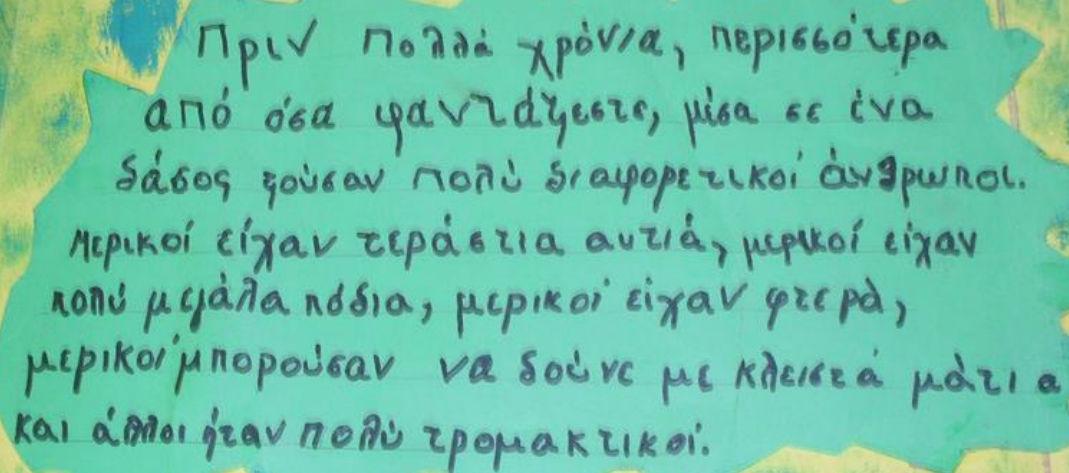 Πριν πολλά χρόνια, περισσότερα
από όσα φαντάζεστε, μέσα σε ένα
δάσος ζούσαν πολύ διαφορετικοί άνθρωποι.
Μερικοί είχαν τεράστια αυτιά, μερικοί είχαν
πολύ μεγάλα πόδια, μερικοί είχαν φτερά,
μερικοί μπορούσαν να δούνε με κλειστά μάτια
και άλλοι ήταν πολύ τρομακτικοί.